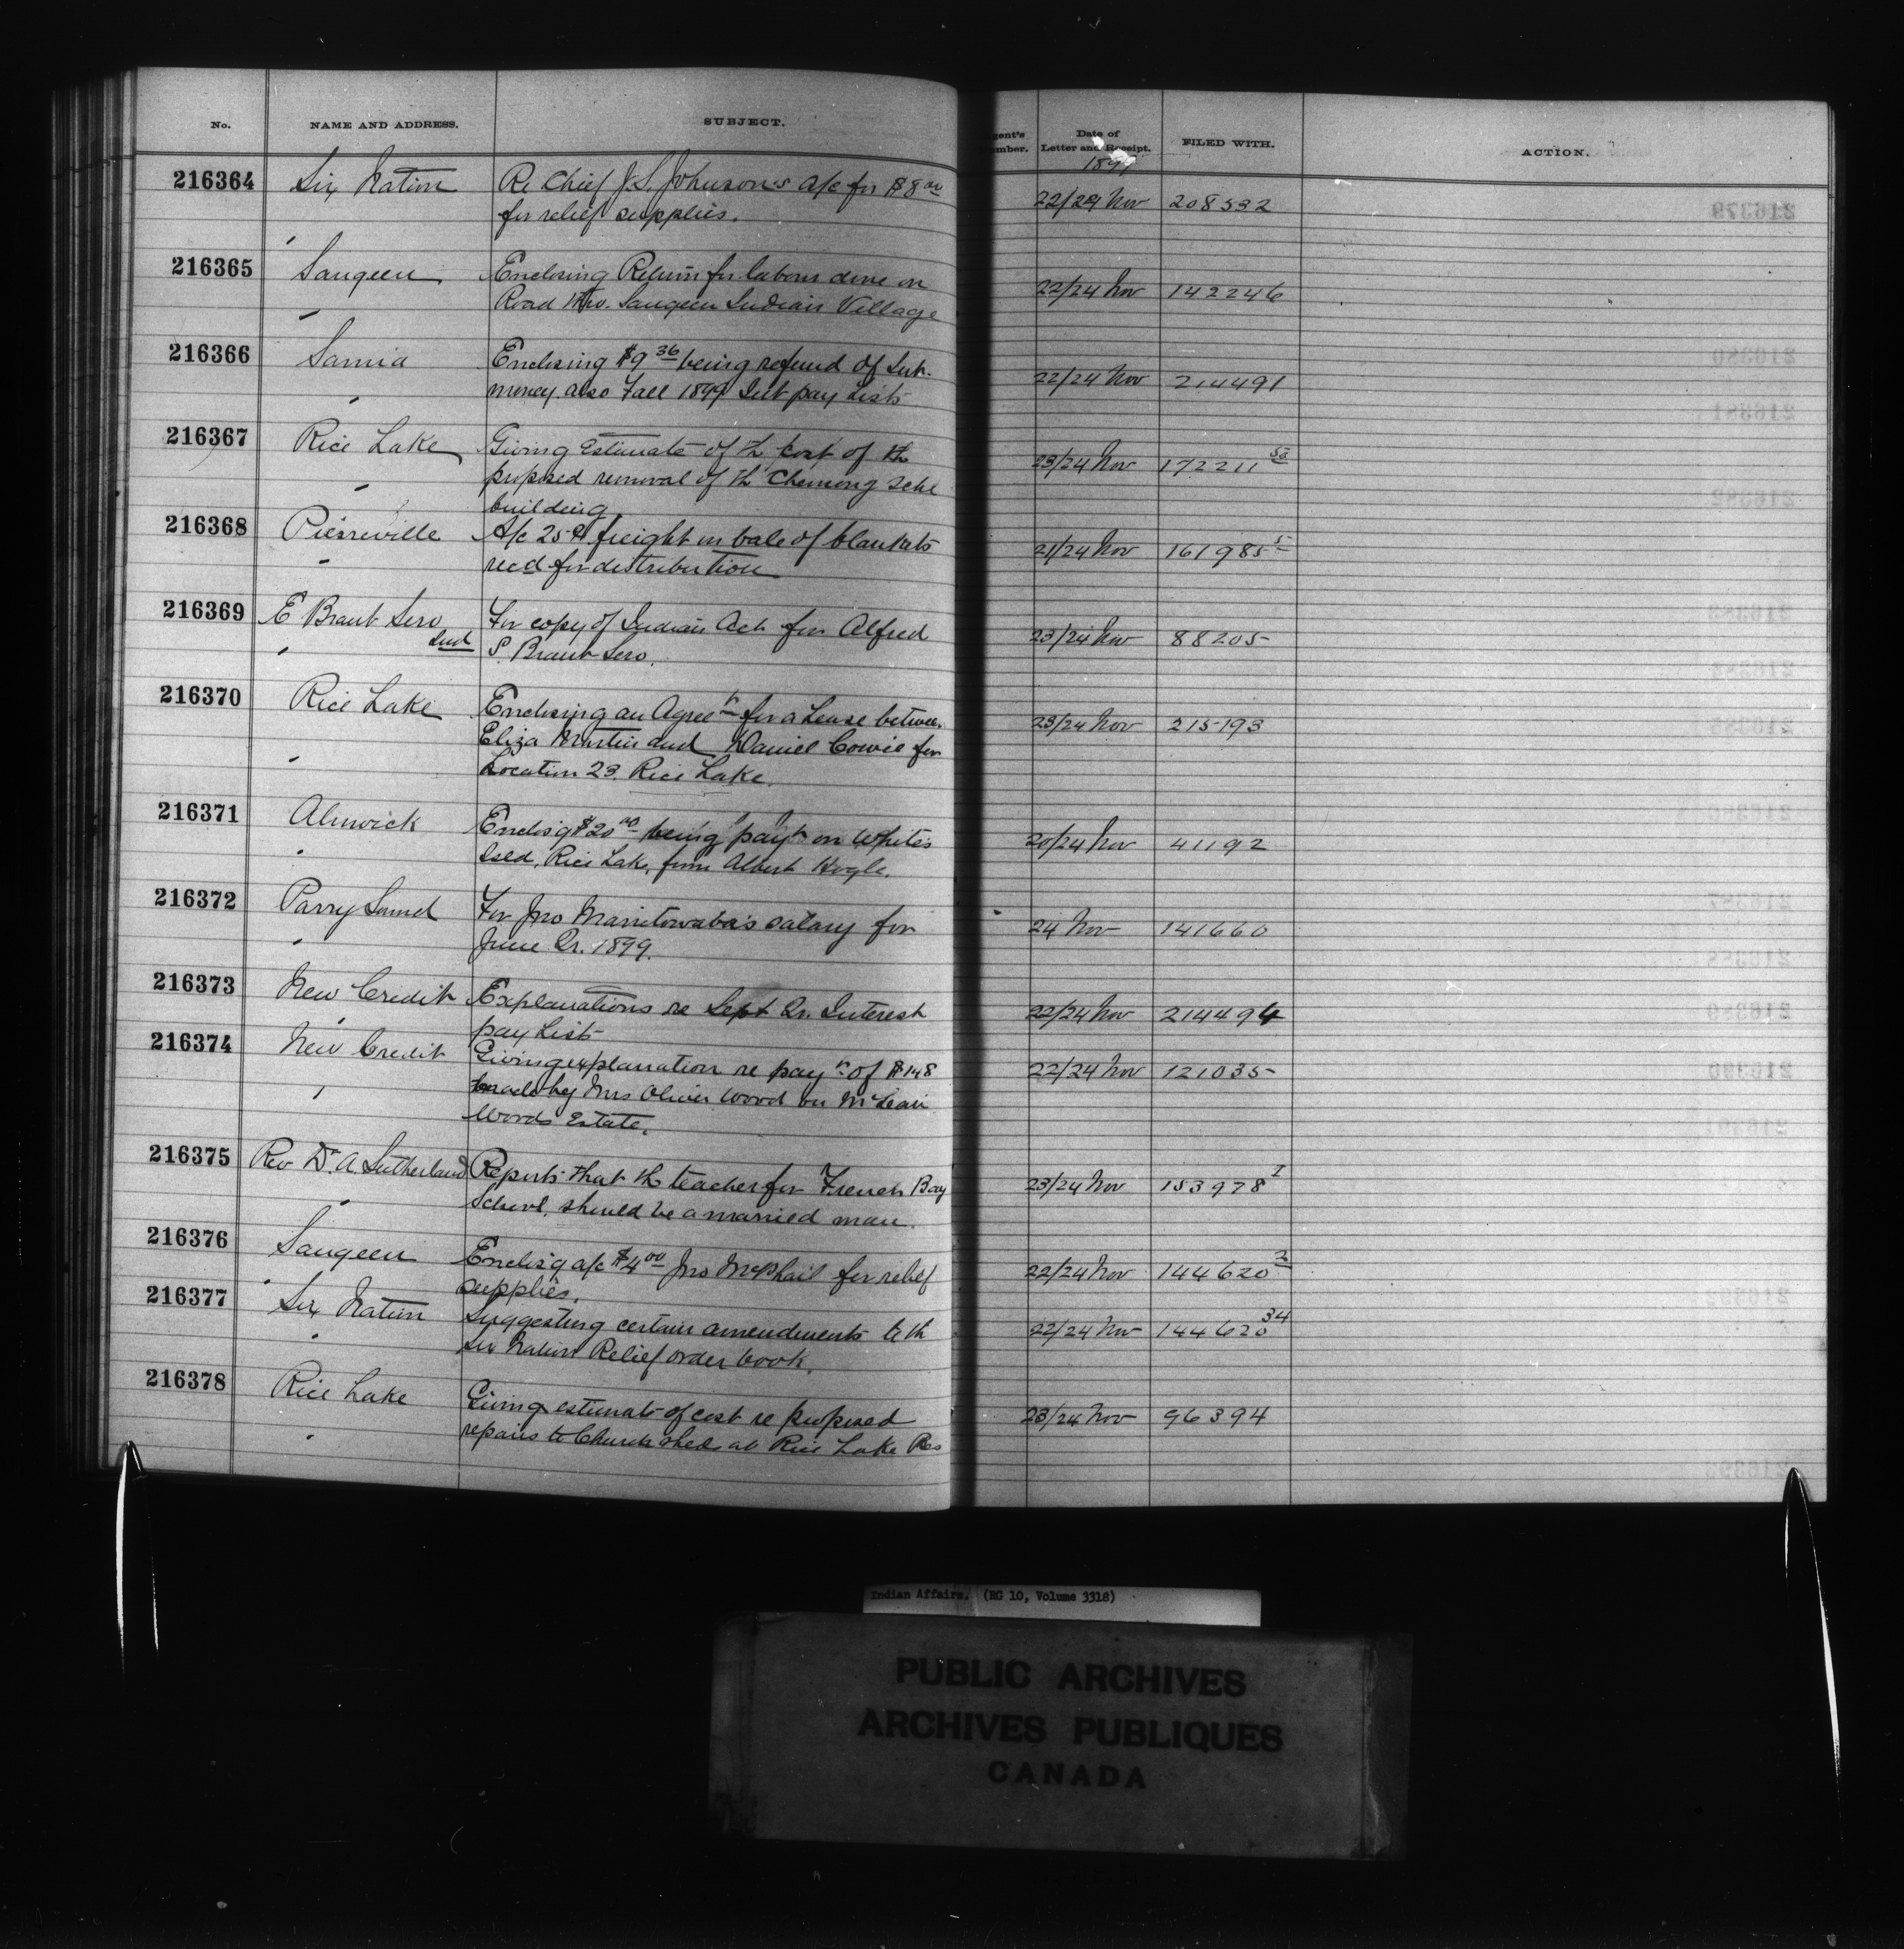 No. NAME AND ADDRESS. SUBJECT. Agent's Number. Date of Letter and Receipt. FILED WITH. ACTION.
1899
216364 Six Nation Re Chief J. S. Johnson's a/c for $8 00 22/24 Nov 208532
for relief supplies.
216365 Saugeen Enclosing Return for labour done on 22/24 Nov 142246
Road thro. Saugeen Indian Village
216366 Sarnia Enclosing $9 36 being refund of Int. 22/24 Nov 214491
money also Fall 1899 Int pay Lists
216367 Rice Lake Giving Estimate of th cost of th 23/24 Nov 172211 50
proposed removal of th Chemong Schl
building
216368 Pierreville A/c 25 ct freight on bale of blankets 21/24 Nov 161985 5
recd for distribution
216369 E Brant Sero For copy of Indian Act for Alfred 23/24 Nov 88205
Ind S. Brant Sero.
216370 Rice Lake Enclosing an Agreet for a Lease betwee. 23/24 Nov 215193
Eliza Martin and Daniel Cowie for
Location 23. Rice Lake.
216371 Alnwick Enclos'g $20 00 being payt on White's 20/24 Nov 41192
Isld. Rice Lake, from Albert Hogle.
216372 Parry Sound For Jno Manitowaba's salary for 24 Nov 141660
June Qr. 1899.
216373 New Credit Explanations re Sept Qr. Interest 22/24 Nov 214494
pay List
216374 New Credit Giving explanation re payt of $148 22/24 Nov 121035
made by Mrs Oliver Wood on McLean
Woods Estate.
216375 Rev Dr. A Sutherland Reports that th teacher for French Bay 23/24 Nov 153978 1
School, should be a married man.
216376 Saugeen Enclos'g a/c $4 00 Jno McPhail for relief 22/24 Nov 144620 2
supplies.
216377 Six Nation Suggesting certain amendments to th 22/24 Nov 144620 34
Six Nation Relief order book.
216378 Rice Lake Giving estimate of cost re proposed 23/24 Nov 96394
repairs to Church shed at Rice Lake Res
Indian Affairs. (RG 10, Volume 3318)
PUBLIC ARCHIVES
ARCHIVES PUBLIQUES
CANADA